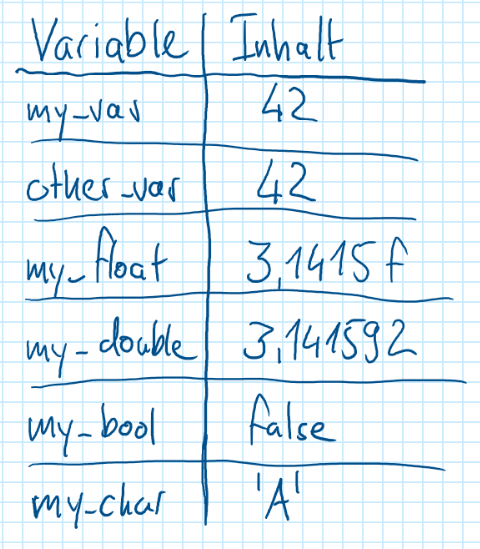 Variable Inhalt
my_var 42
other_var 42
my_float 3,1415f
my_double 3,141592
my_bool false
my_char 'A'